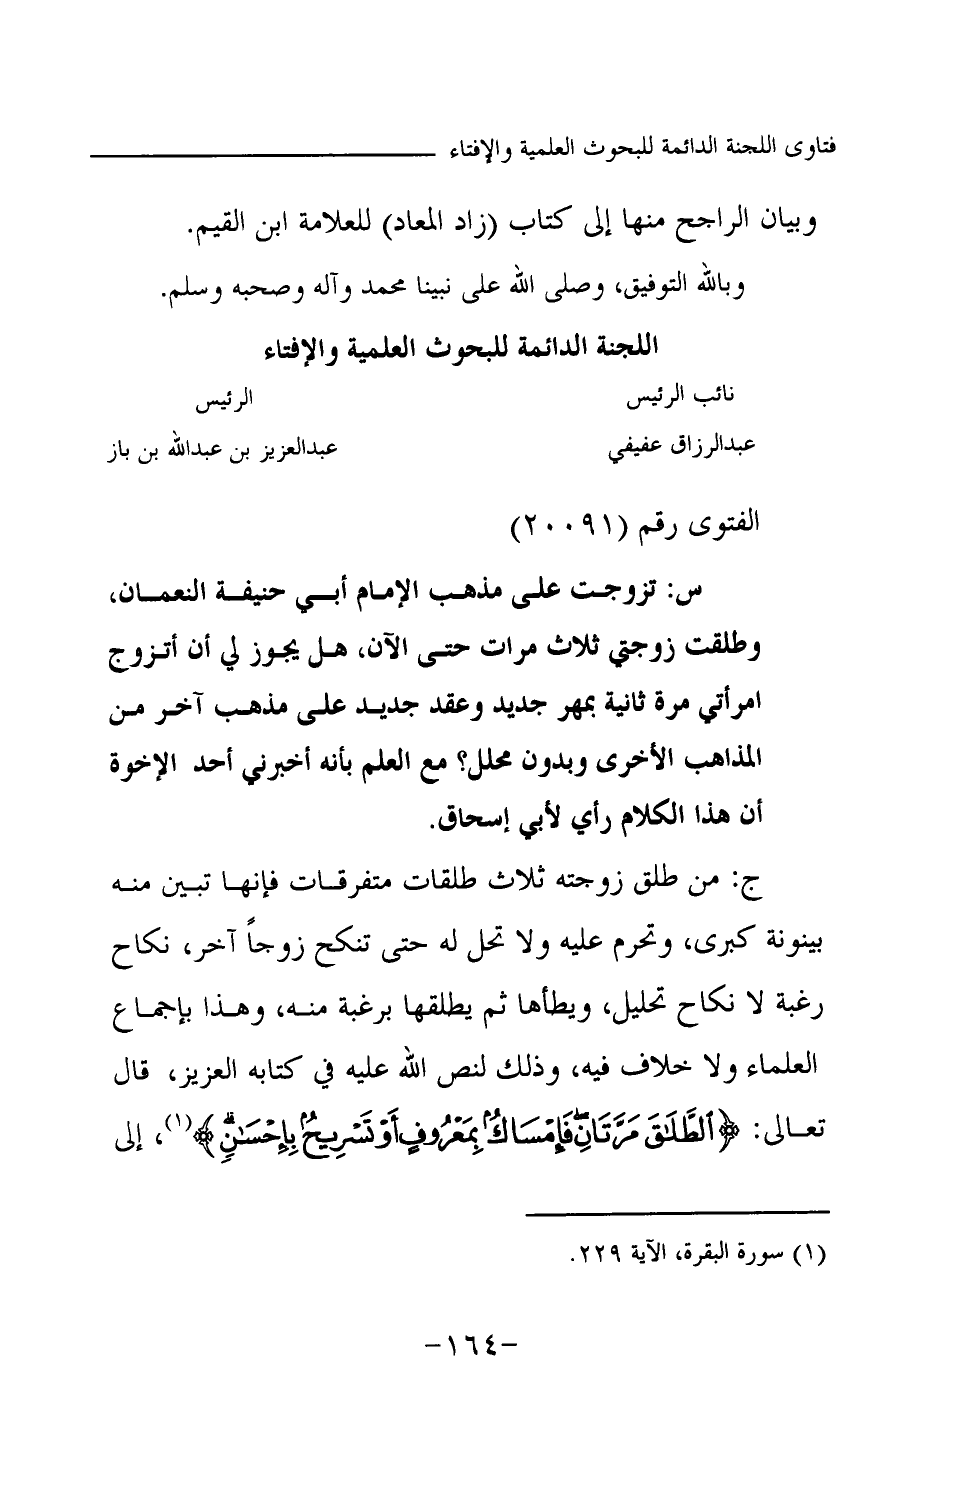 فتاوى اللجنة الدائمة للبحوث العلمية والإفتاء
وبيان الراجح منها إلى كتاب (زاد المعاد) للعلامة ابن القيم.
وبالله التوفيق، وصلى الله على نبينا محمد وآله وصحبه وسلم.
اللجنة الدائمة للبحوث العلمية والإفتاء
نائب الرئيس الرئيس
عبدالرزاق عفيفي عبدالعزيز بن عبدالله بن باز
الفتوى رقم (٢٠٠٩١)
س: تزوجت على مذهب الإمام أبي حنيفة النعمان،
وطلقت زوجتي ثلاث مرات حتى الآن، هل يجوز لي أن أتزوج
امرأتي مرة ثانية بمهر جديد وعقد جديد على مذهب آخر من
المذاهب الأخرى وبدون محلل؟ مع العلم بأنه أخبرني أحد الإخوة
أن هذا الكلام رأي لأبي إسحاق.
ج: من طلق زوجته ثلاث طلقات متفرقات فإنها تبين منه
بينونة كبرى، وتحرم عليه ولا تحل له حتى تنكح زوجاً آخر، نكاح
رغبة لا نكاح تحليل، ويطأها ثم يطلقها برغبة منه، وهذا بإجماع
العلماء ولا خلاف فيه، وذلك لنص الله عليه في كتابه العزيز، قال
تعالى: ﴿ٱلطَّلَٰقُ مَرَّتَانِۖ فَإِمۡسَاكُۢ بِمَعۡرُوفٍ أَوۡ تَسۡرِيحُۢ بِإِحۡسَٰنٖۗ﴾(١)، إلى
(١) سورة البقرة، الآية ٢٢٩.
-١٦٤-